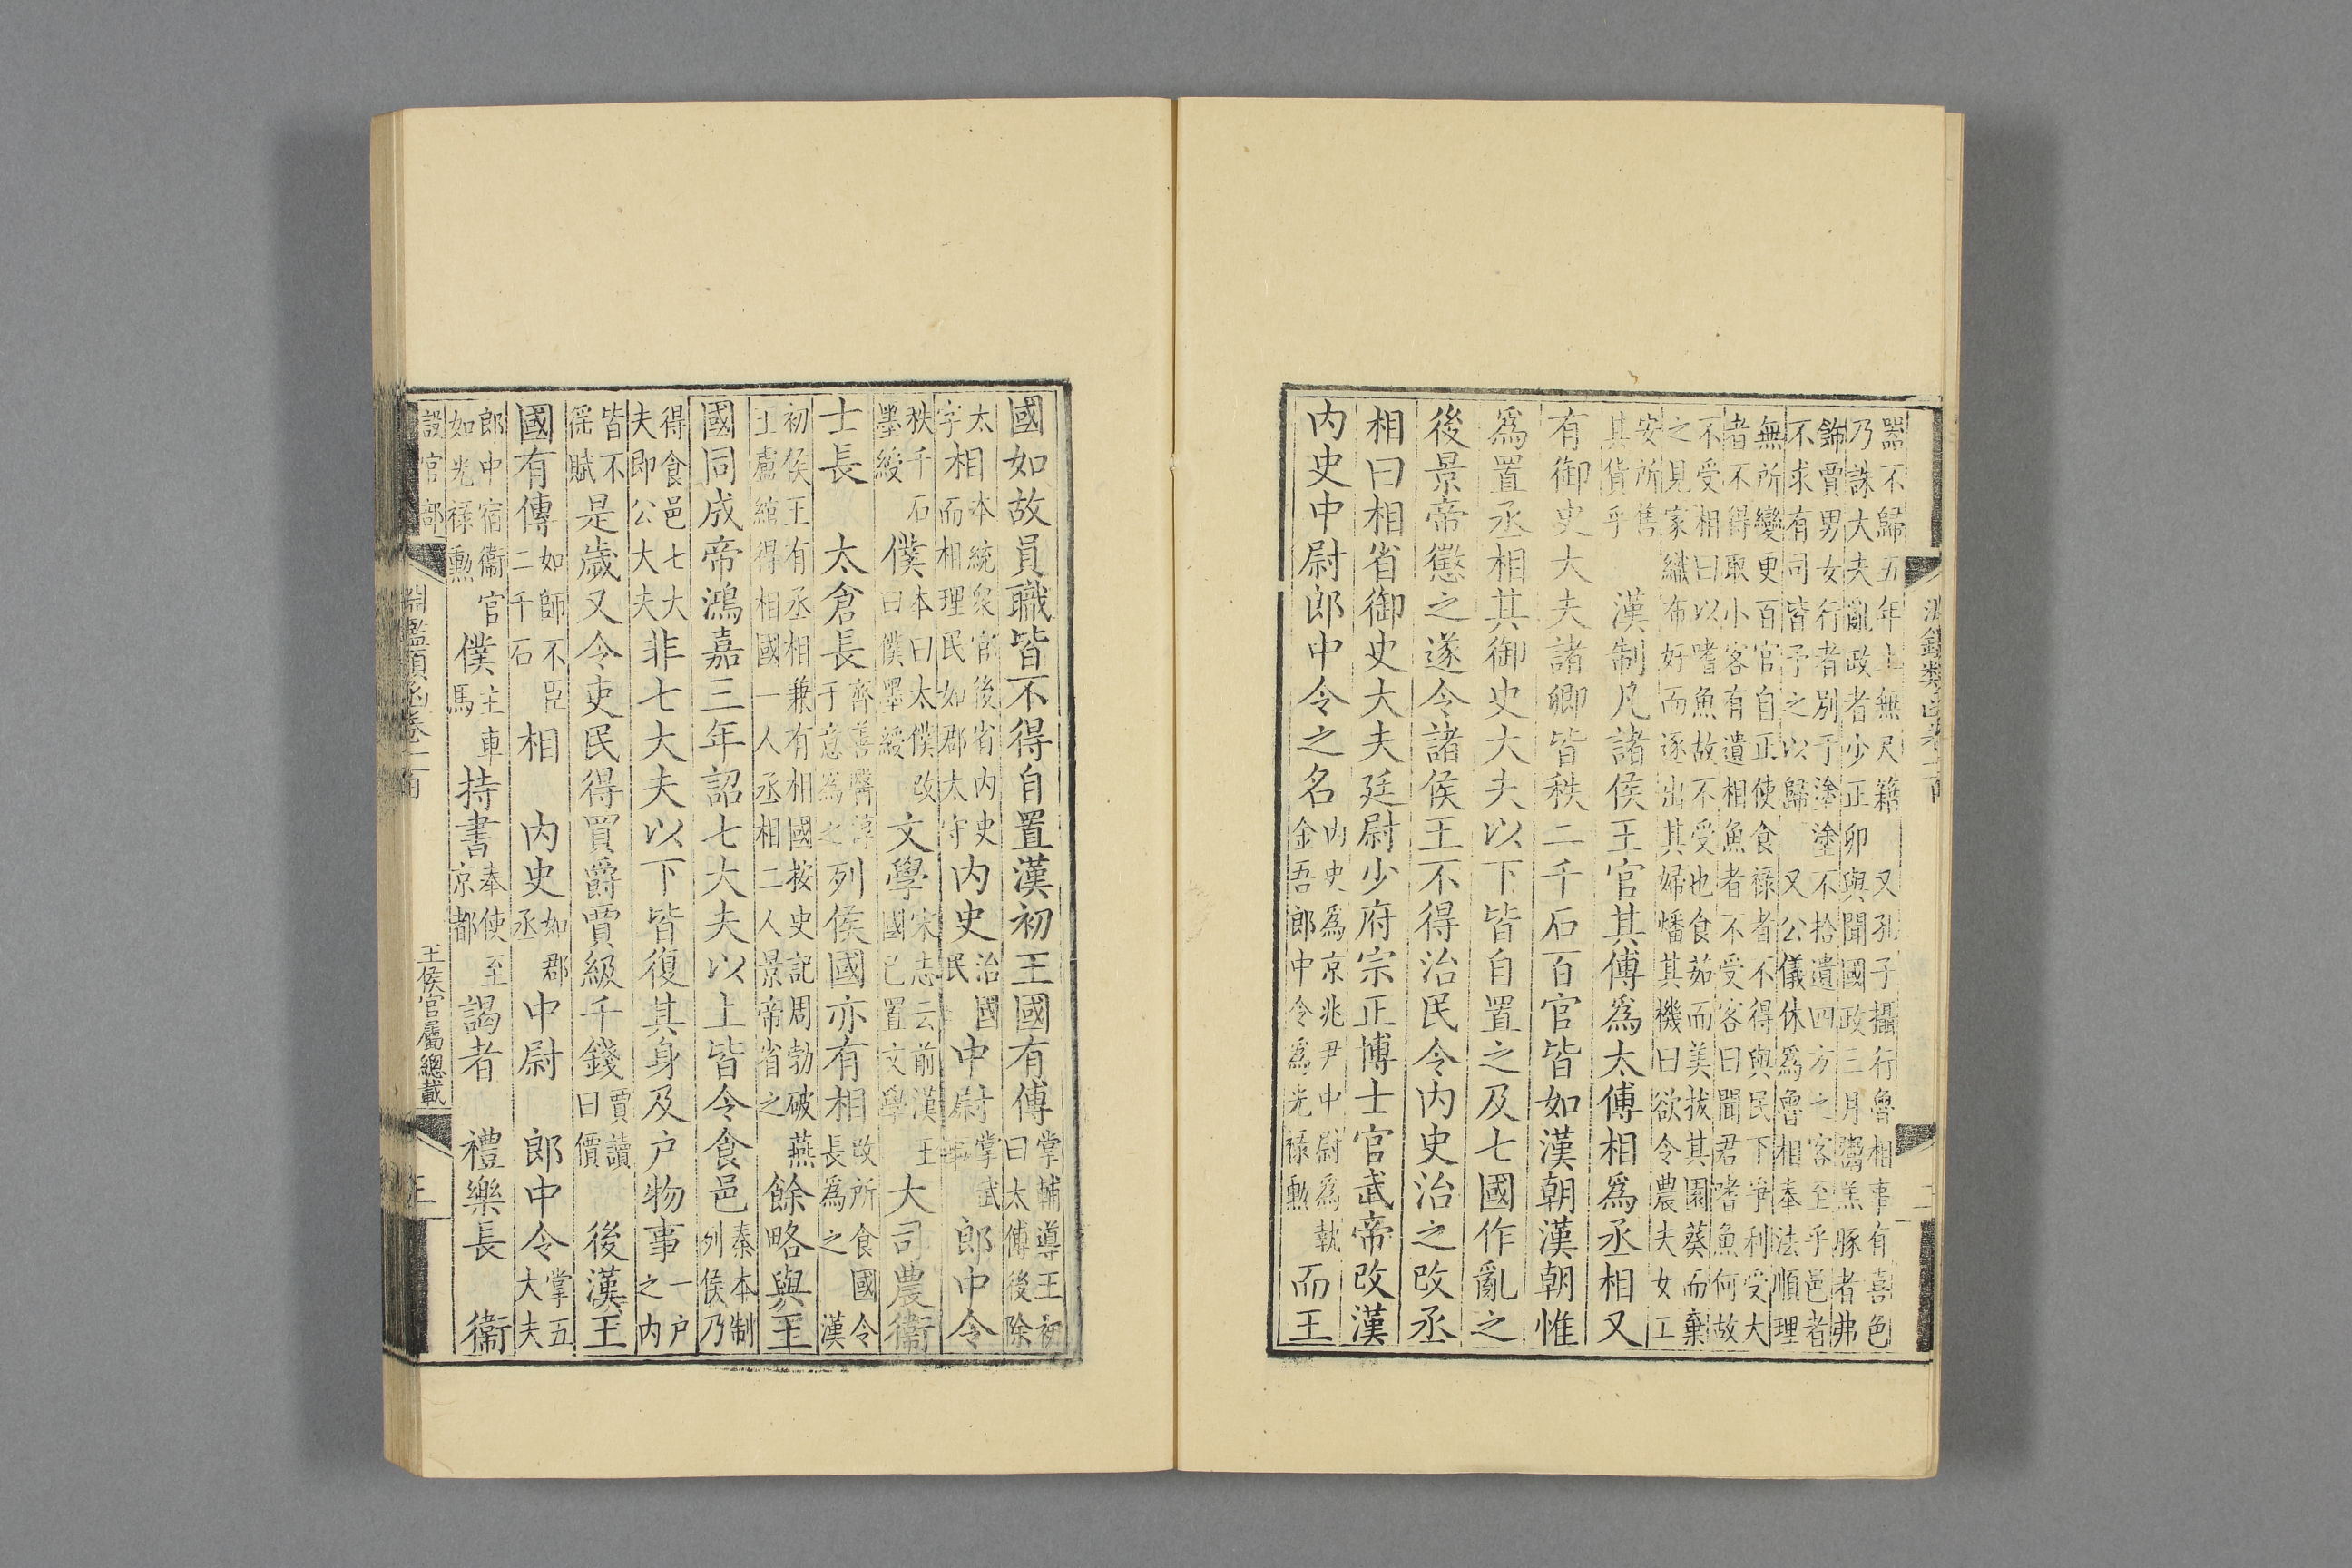 器不歸五年上無尺籍　又孔子攝行魯相事有喜色
乃誅大夫亂政者少正卯與聞國政三月鬻羔豚者弗
飾賈男女行者別于塗塗不拾遺四方之客至乎邑者
不求有司皆予之以歸　又公儀休爲魯相奉法順理
無所變更百官自正使食祿者不得與民下爭利受大
者不得取小客有遺相魚者不受客曰聞君嗜魚何故
不受相曰以嗜魚故不受也食茹而美拔其園葵而棄
之見家織布好而逐出其婦幡其機曰欲令農夫女工
安所售其貨乎　漢制凡諸侯王官其傅爲太傅相爲丞相又
有御史大夫諸卿皆秩二千石百官皆如漢朝漢朝惟
爲置丞相其御史大夫以下皆自置之及七國作亂之
後景帝懲之遂令諸侯王不得治民令内史治之改丞
相曰相省御史大夫廷尉少府宗正博士官武帝改漢
内史中尉郎中令之名内史爲京兆尹中尉爲執金吾郎中令爲光祿勲而王
國如故員職皆不得自置漢初王國有傅掌輔導王初曰太傅後除
太字相本統衆官後省内史而相理民如郡太守内史治國民中尉掌武郎中令
秩千石墨綬僕本曰太僕改曰僕墨綬文學宋志云前漢王國已置文學大司農衞
士長　太倉長齊善醫淳于意爲之列侯國亦有相改所食國令長爲之漢
初侯王有丞相兼有相國按史記周勃破燕王盧綰得相國一人丞相二人景帝省之餘略與王
國同成帝鴻嘉三年詔七大夫以上皆令食邑秦本制列侯乃
得食邑七大夫即公大夫非七大夫以下皆復其身及户物事一户之内
皆不徭賦是歲又令吏民得買爵賈級千錢賈讀曰價　後漢王
國有傅如師不臣二千石相　内史如郡丞中尉　郎中令掌五大夫
郎中宿衞官如光祿勲僕主車馬持書奉使至京都謁者　禮樂長　衞
設官部
淵鑑類函卷一百
王侯官屬總載
三